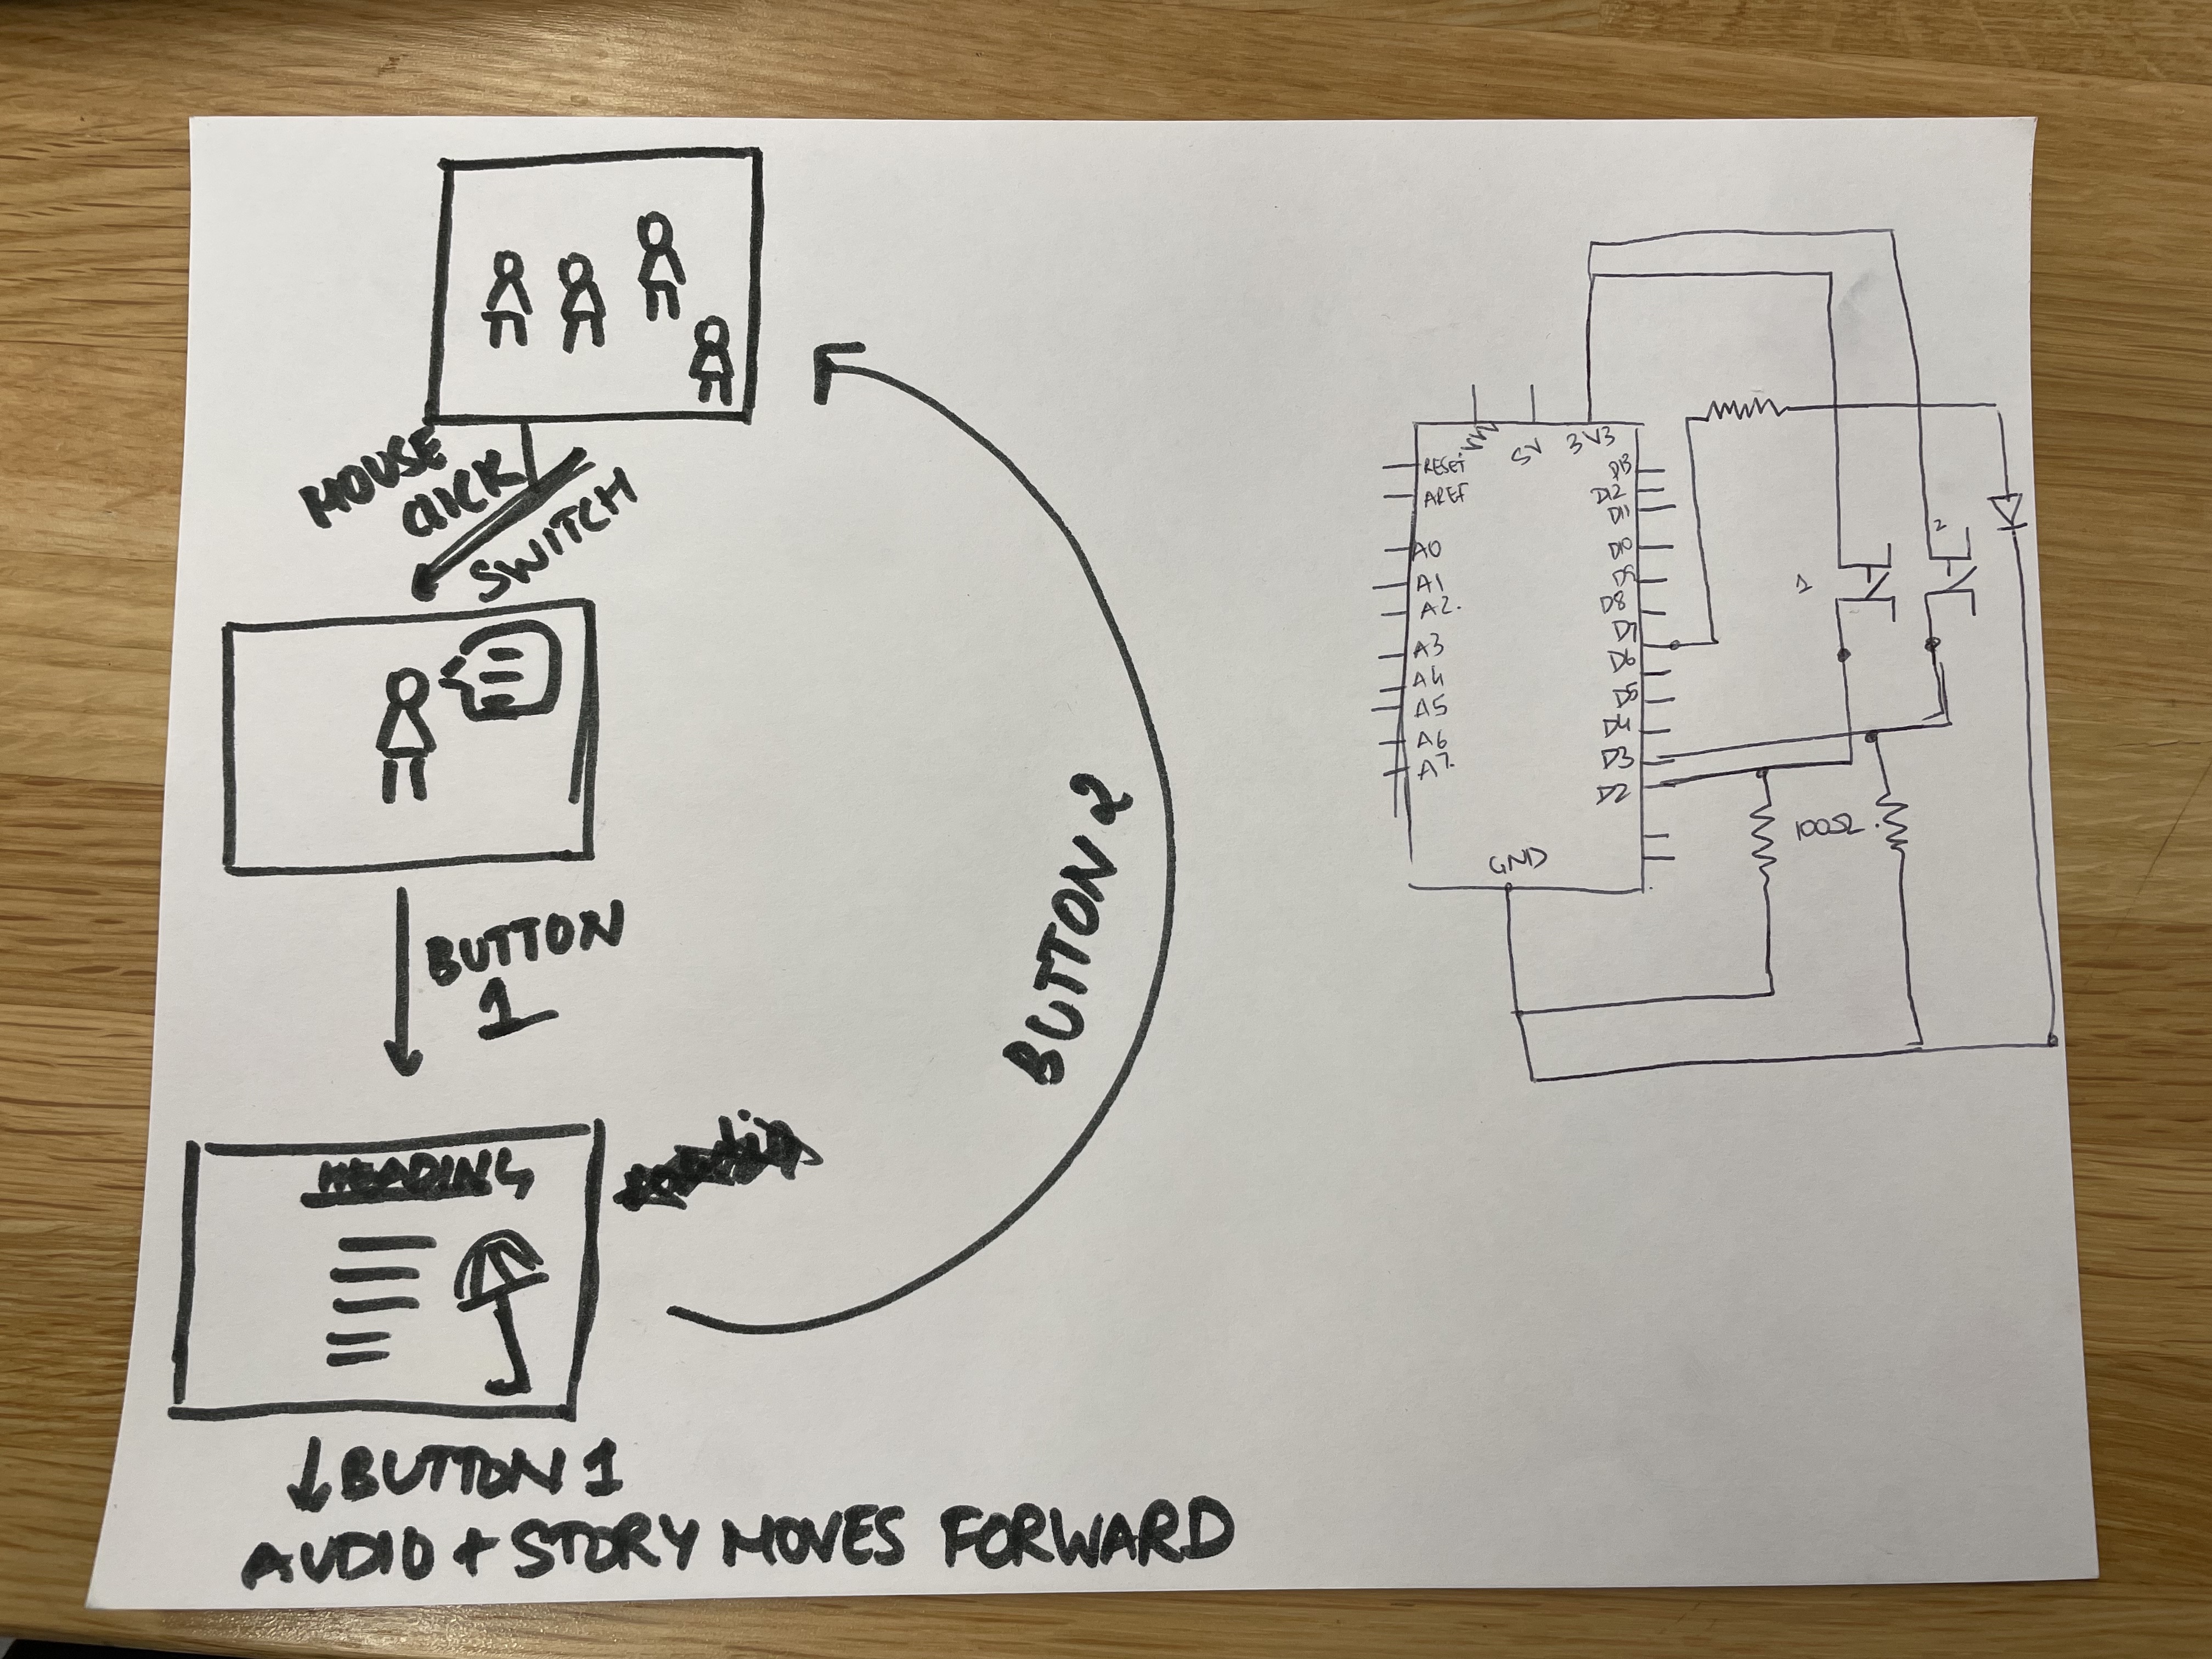 MOUSE
CLICK
SWITCH
BUTTON
1
HEADING
BUTTON 2
BUTTON 1
AUDIO + STORY MOVES FORWARD
5V
3V3
RESET
AREF
A0
A1
A2.
A3
A4
A5
A6
A7.
D13
D12
D11
D10
D9
D8
D7
D6
D5
D4
D3
D2
GND
1
2
100Ω.